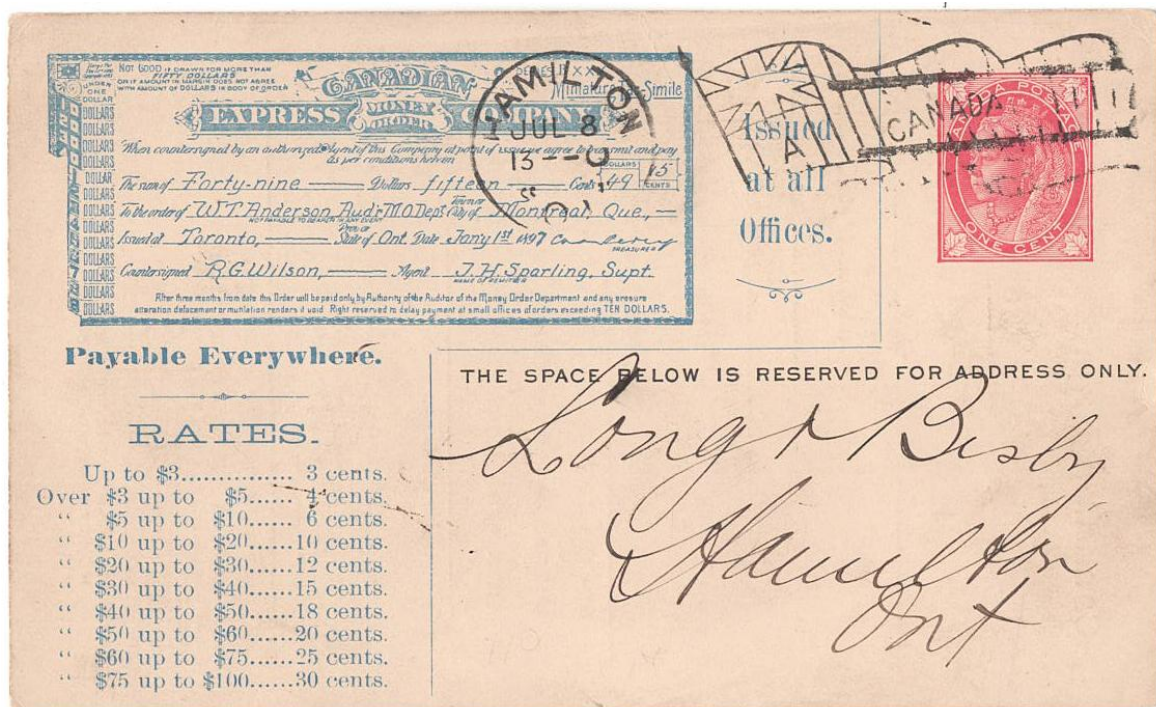 NOT GOOD IF DRAWN FOR MORE THAN
FIFTY DOLLARS
OR IF AMOUNT IN MARGIN DOES NOT AGREE
WITH AMOUNT OF DOLLARS IN BODY OF ORDER
CANADIAN
Miniature Simile
EXPRESS MONEY ORDER COMPANY
When countersigned by an authorized Agent of this Company at point of issue we agree to transmit and pay
as per conditions hereon
DOLLARS CENTS
The sum of Forty-nine Dollars fifteen Cents 49 15
To the order of W.T. Anderson, Aud'r M.O Dep't City of Montreal, Que.,
Issued at Toronto, State of Ont. Date Jan'y 1st 1897
TREASURER
Countersigned R.G. Wilson, Agent J.H. Sparling, Supt.
NAME OF REMITTER
After three months from date this Order will be paid only by Authority of the Auditor of the Money Order Department and any erasure
alteration defacement or mutilation renders it void. Right reserved to delay payment at small offices of orders exceeding TEN DOLLARS.
HAMILTON
JUL 8
13
Issued
at all
Offices.
A
CANADA
CANADA POSTAGE
ONE CENT
Payable Everywhere.
RATES.
Up to $3............... 3 cents.
Over $3 up to $5...... 4 cents.
“ $5 up to $10...... 6 cents.
“ $10 up to $20......10 cents.
“ $20 up to $30......12 cents.
“ $30 up to $40......15 cents.
“ $40 up to $50......18 cents.
“ $50 up to $60......20 cents.
“ $60 up to $75......25 cents.
“ $75 up to $100......30 cents.
THE SPACE BELOW IS RESERVED FOR ADDRESS ONLY.
Long & Bisby
Hamilton
Ont